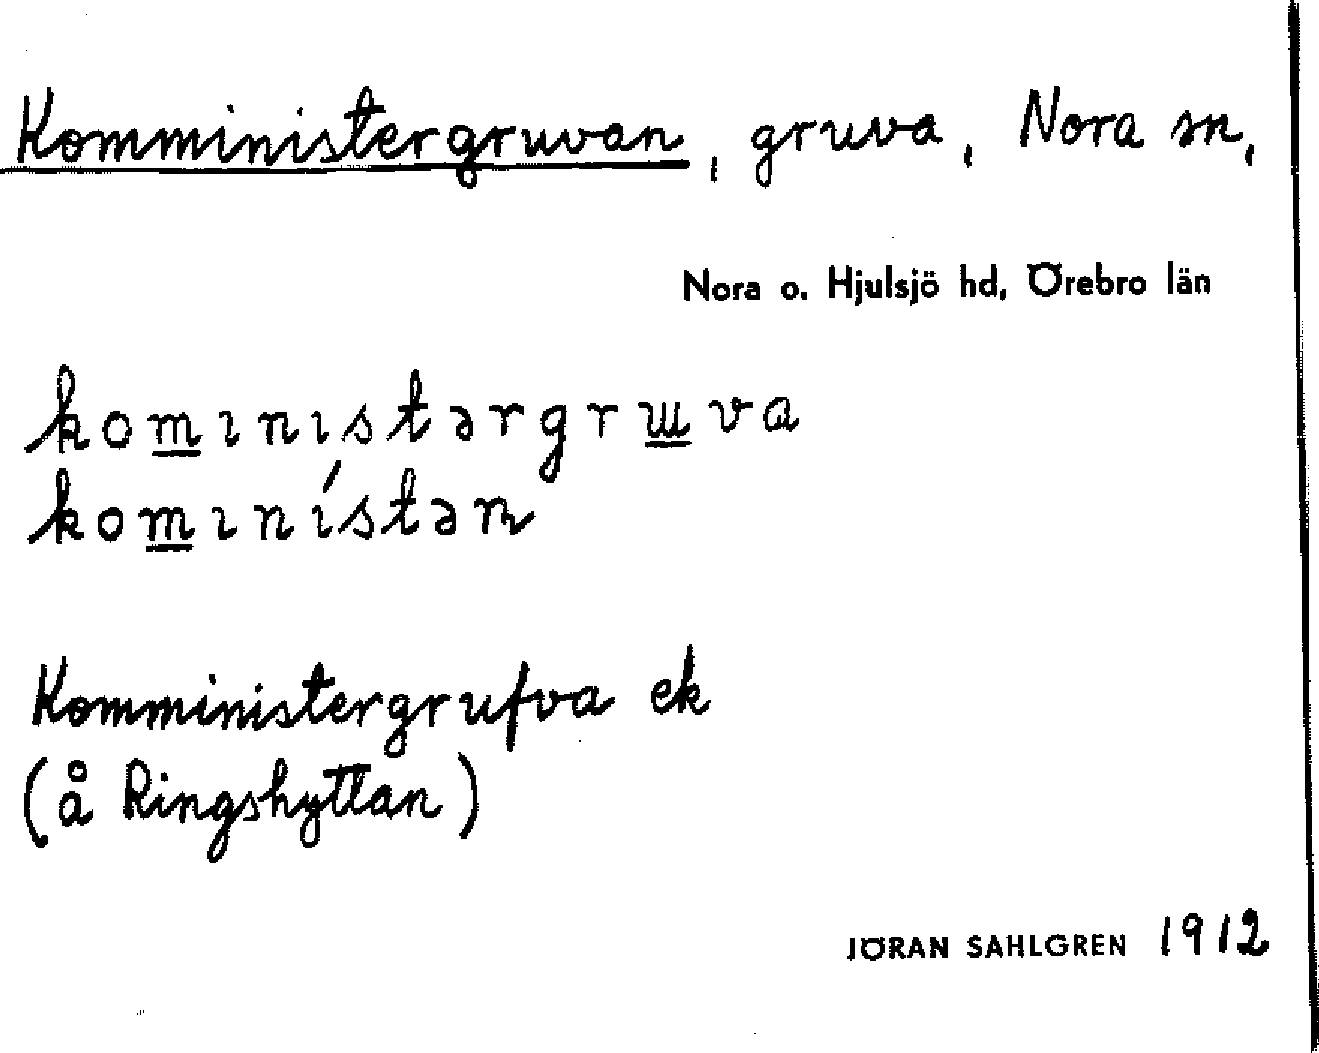 Komministergruvan, gruva, Nora sn,
Nora o. Hjulsjö hd, Örebro län
kom̲ınıstərgru̲va
kom̲ını́stən
Komministergrufva ek
(å Ringshyttan)
JÖRAN SAHLGREN 1912